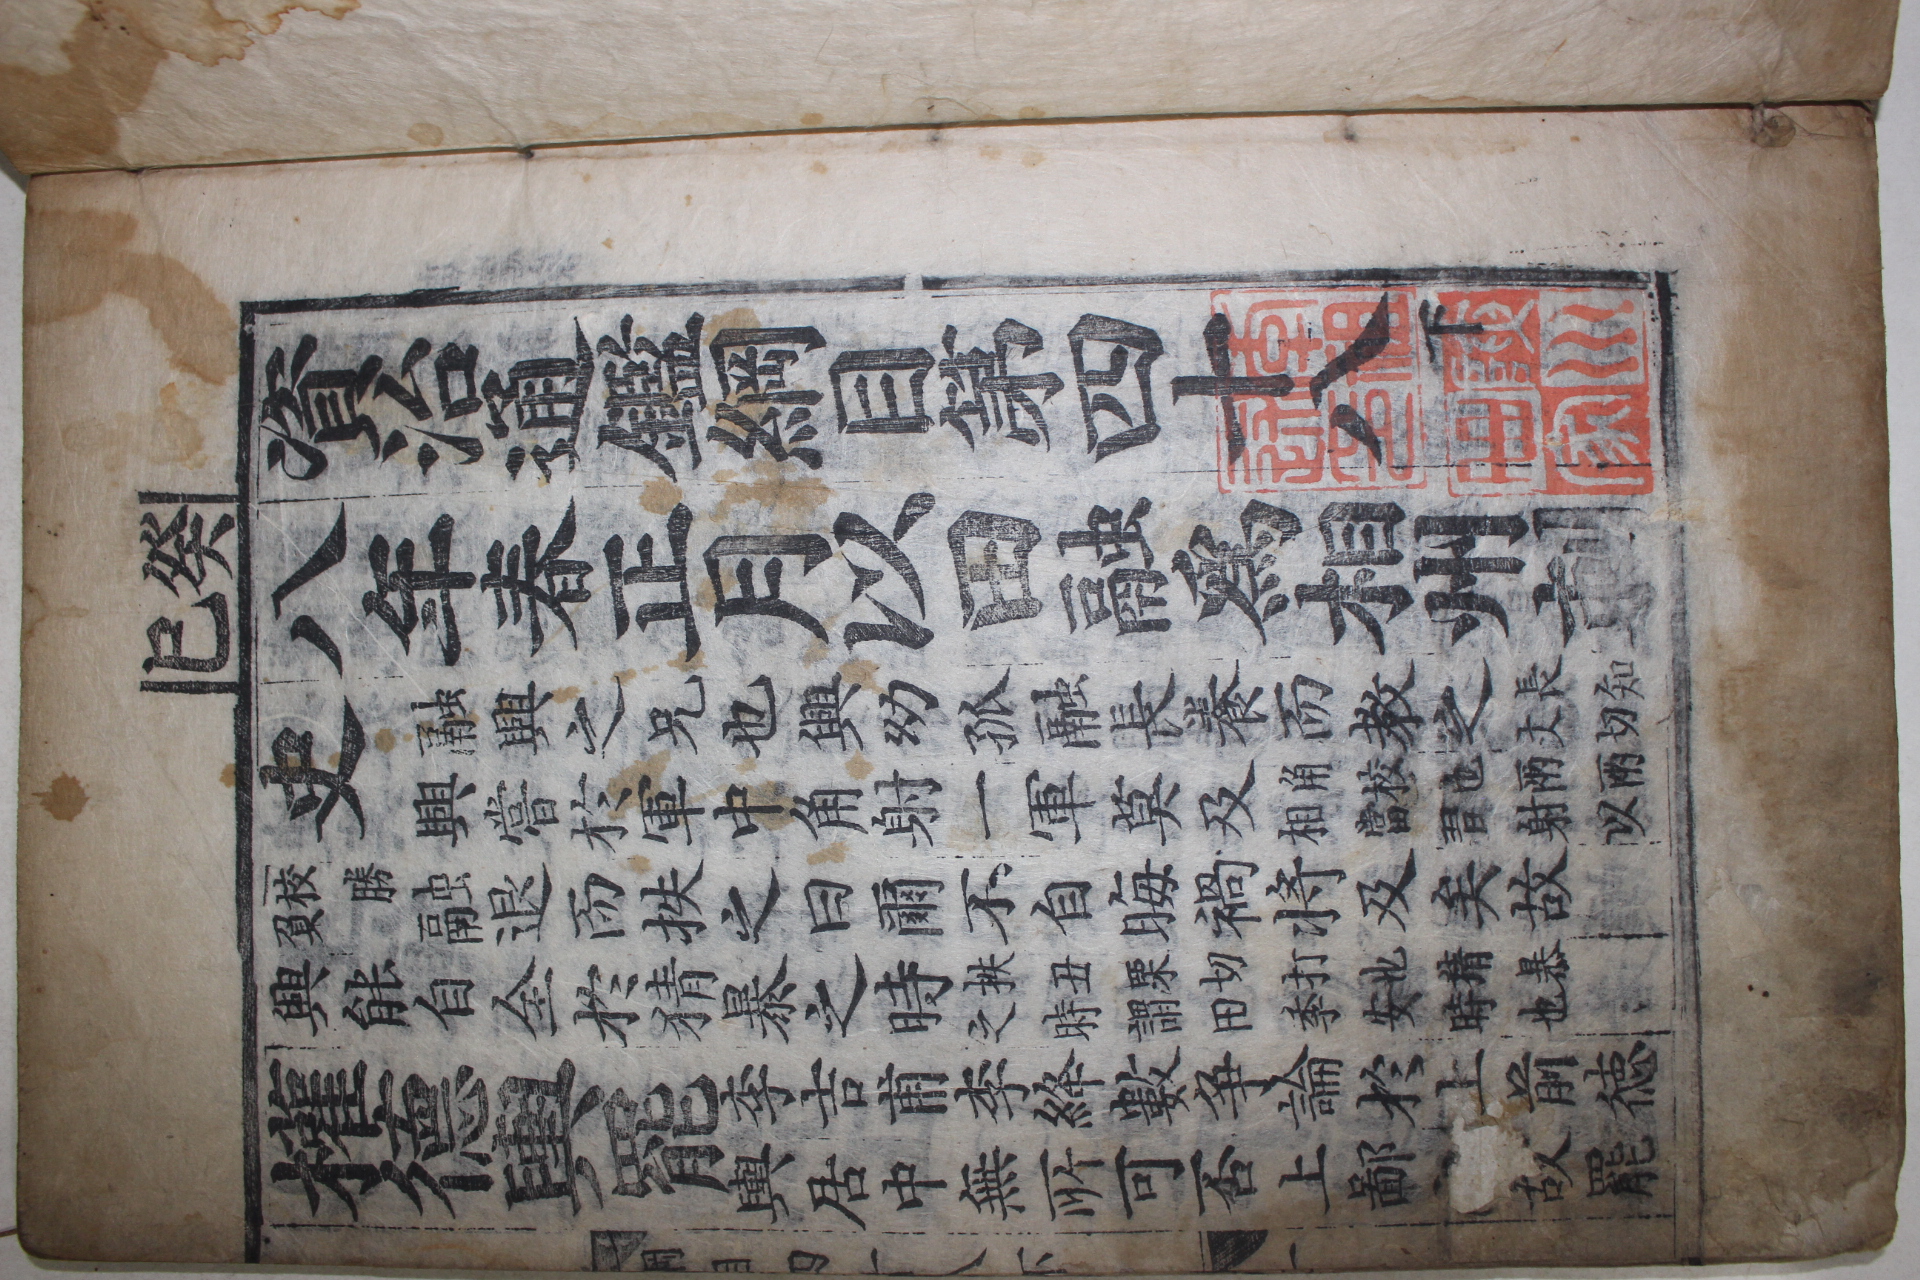 癸巳
資治通鑑綱目第四十八下
八年春正月以田融爲相州刺
史
融興之兄也興幼孤融長養而教之長知丈切
興嘗於軍中角射一軍莫及角校也兩兩相當習射以
校勝負融退而抶之曰爾不自晦禍將及矣故
興能自全於猜暴之時抶丑栗切打也猜暴之時謂田季安時也
權德輿罷
李吉甫李絳數爭論於上前德
輿居中無所可否上鄙故罷
綱目四十八下